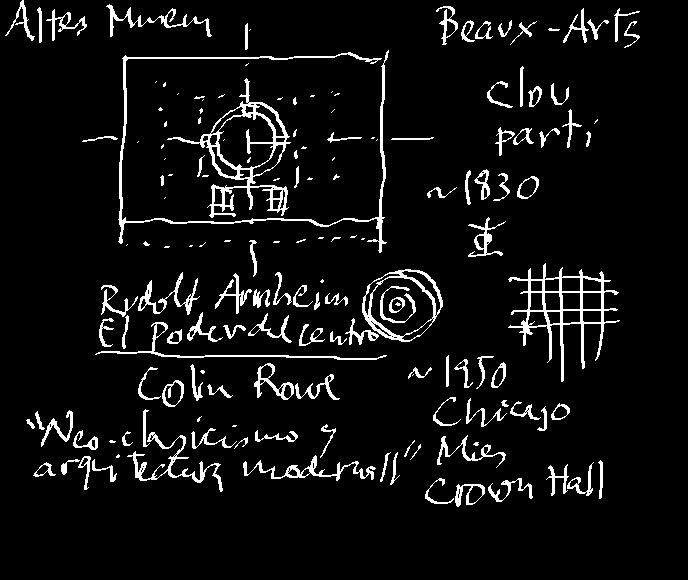 Altes Museum
Beaux-Arts
Clou
parti
~1830
Rudolf Arnheim
El Poder del centro
Colin Rowe
~1950
Chicago
"Neo-clasicismo y
arquitectura moderna II"
Mies
Crown Hall